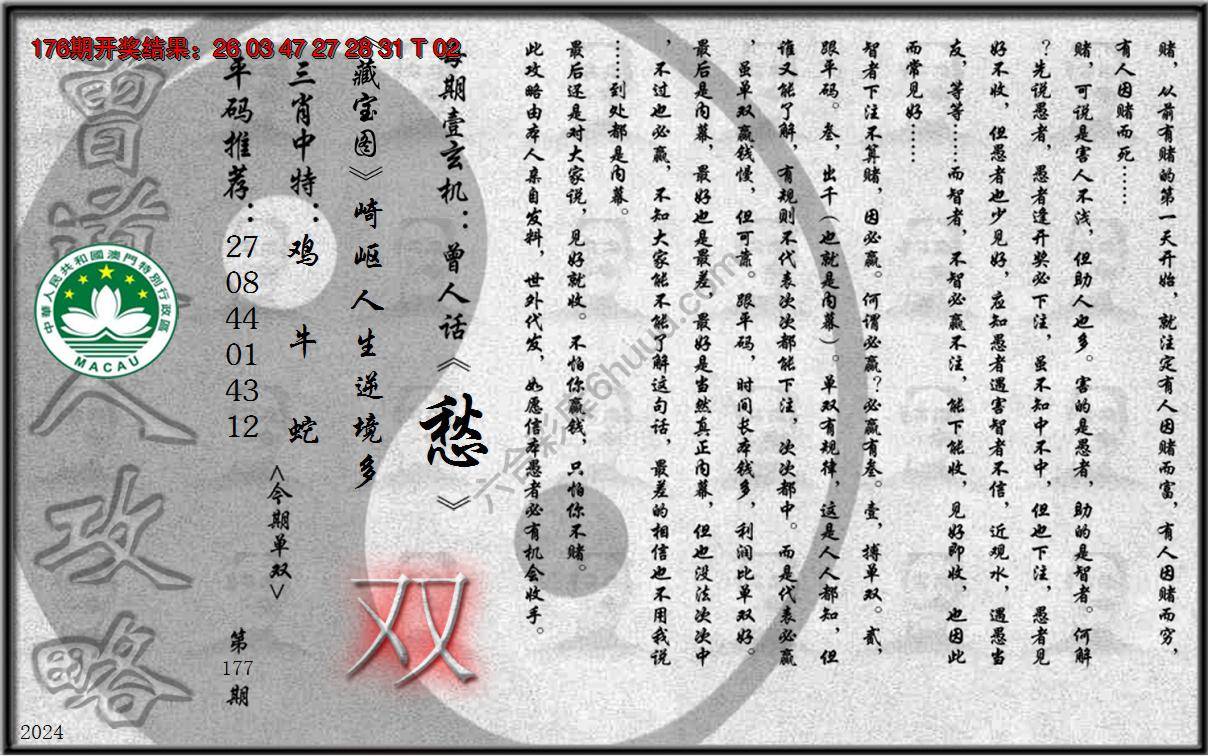 176期开奖结果：26 03 47 27 28 31 T 02
赌，从前有赌的第一天开始，就注定有人因赌而富，有人因赌而穷，
有人因赌而死……
赌，可说是害人不浅，但助人也多。害的是愚者，助的是智者。何解
？先说愚者，愚者逢开奖必下注，虽不知中不中，但也下注，愚者见
好不收，但愚者也少见好，应知愚者遇害智者不信，近观水，遇愚当
友，等等……而智者，不智必赢不注，能下能收，见好即收，也因此
而常见好……
智者下注不算赌，因必赢。何谓必赢？必赢有叁。壹，搏单双。贰，
跟平码。叁，出千（也就是内幕）。单双有规律，这是人人都知，但
谁又能了解，有规则不代表次次都能下注，次次都中。而是代表必赢
，虽单双赢钱慢，但可靠。跟平码，时间长本钱多，利润比单双好。
最后是内幕，最好也是最差，最好是当然真正内幕，但也没法次次中
，不过也必赢，不知大家能不能了解这句话，最差的相信也不用我说
……到处都是内幕。
最后还是对大家说，见好就收。不怕你赢钱，只怕你不赌。
此攻略由本人亲自发料，世外代发，如愿信本愚者必有机会收手。
每期壹玄机：曾人话《愁》
《藏宝图》崎岖人生逆境多
三肖中特：鸡 牛 蛇
平码推荐：27 08 44 01 43 12
<今期单双>
双
第177期
曾道人攻略
中華人民共和國澳門特別行政區
MACAU
六合彩库6huuu.com
2024